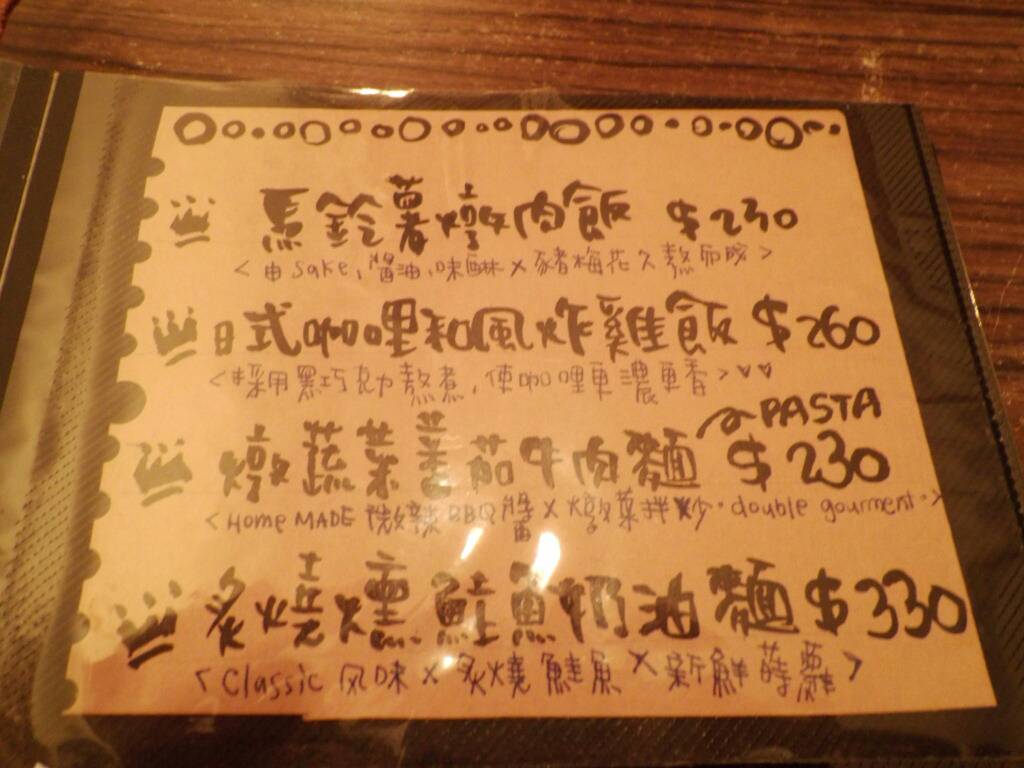 馬鈴薯燉肉飯 $230
<由sake,醬油,味醂×豬梅花久熬而成>
日式咖哩和風炸雞飯 $260
<採用黑巧克力熬煮,使咖哩更濃更香>♥♥
PASTA
燉蔬菜蕃茄牛肉麵 $230
<HOME MADE 微辣BBQ醬×燉菜拌炒·double gourment·>
炙燒燻鮭魚奶油麵 $330
<Classic 风味×炙燒鮭魚×新鮮蒔蘿>